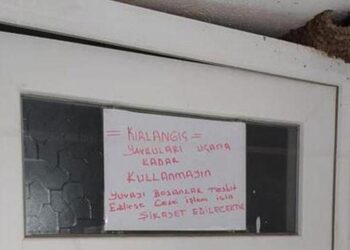 = KIRLANGIÇ =
YAVRULARI UÇANA
KADAR
KULLANMAYIN
YUVAYI BOZANLAR TESBİT
Edilirse Cezai işlem için
ŞİKAYET EDİLECEKTİR